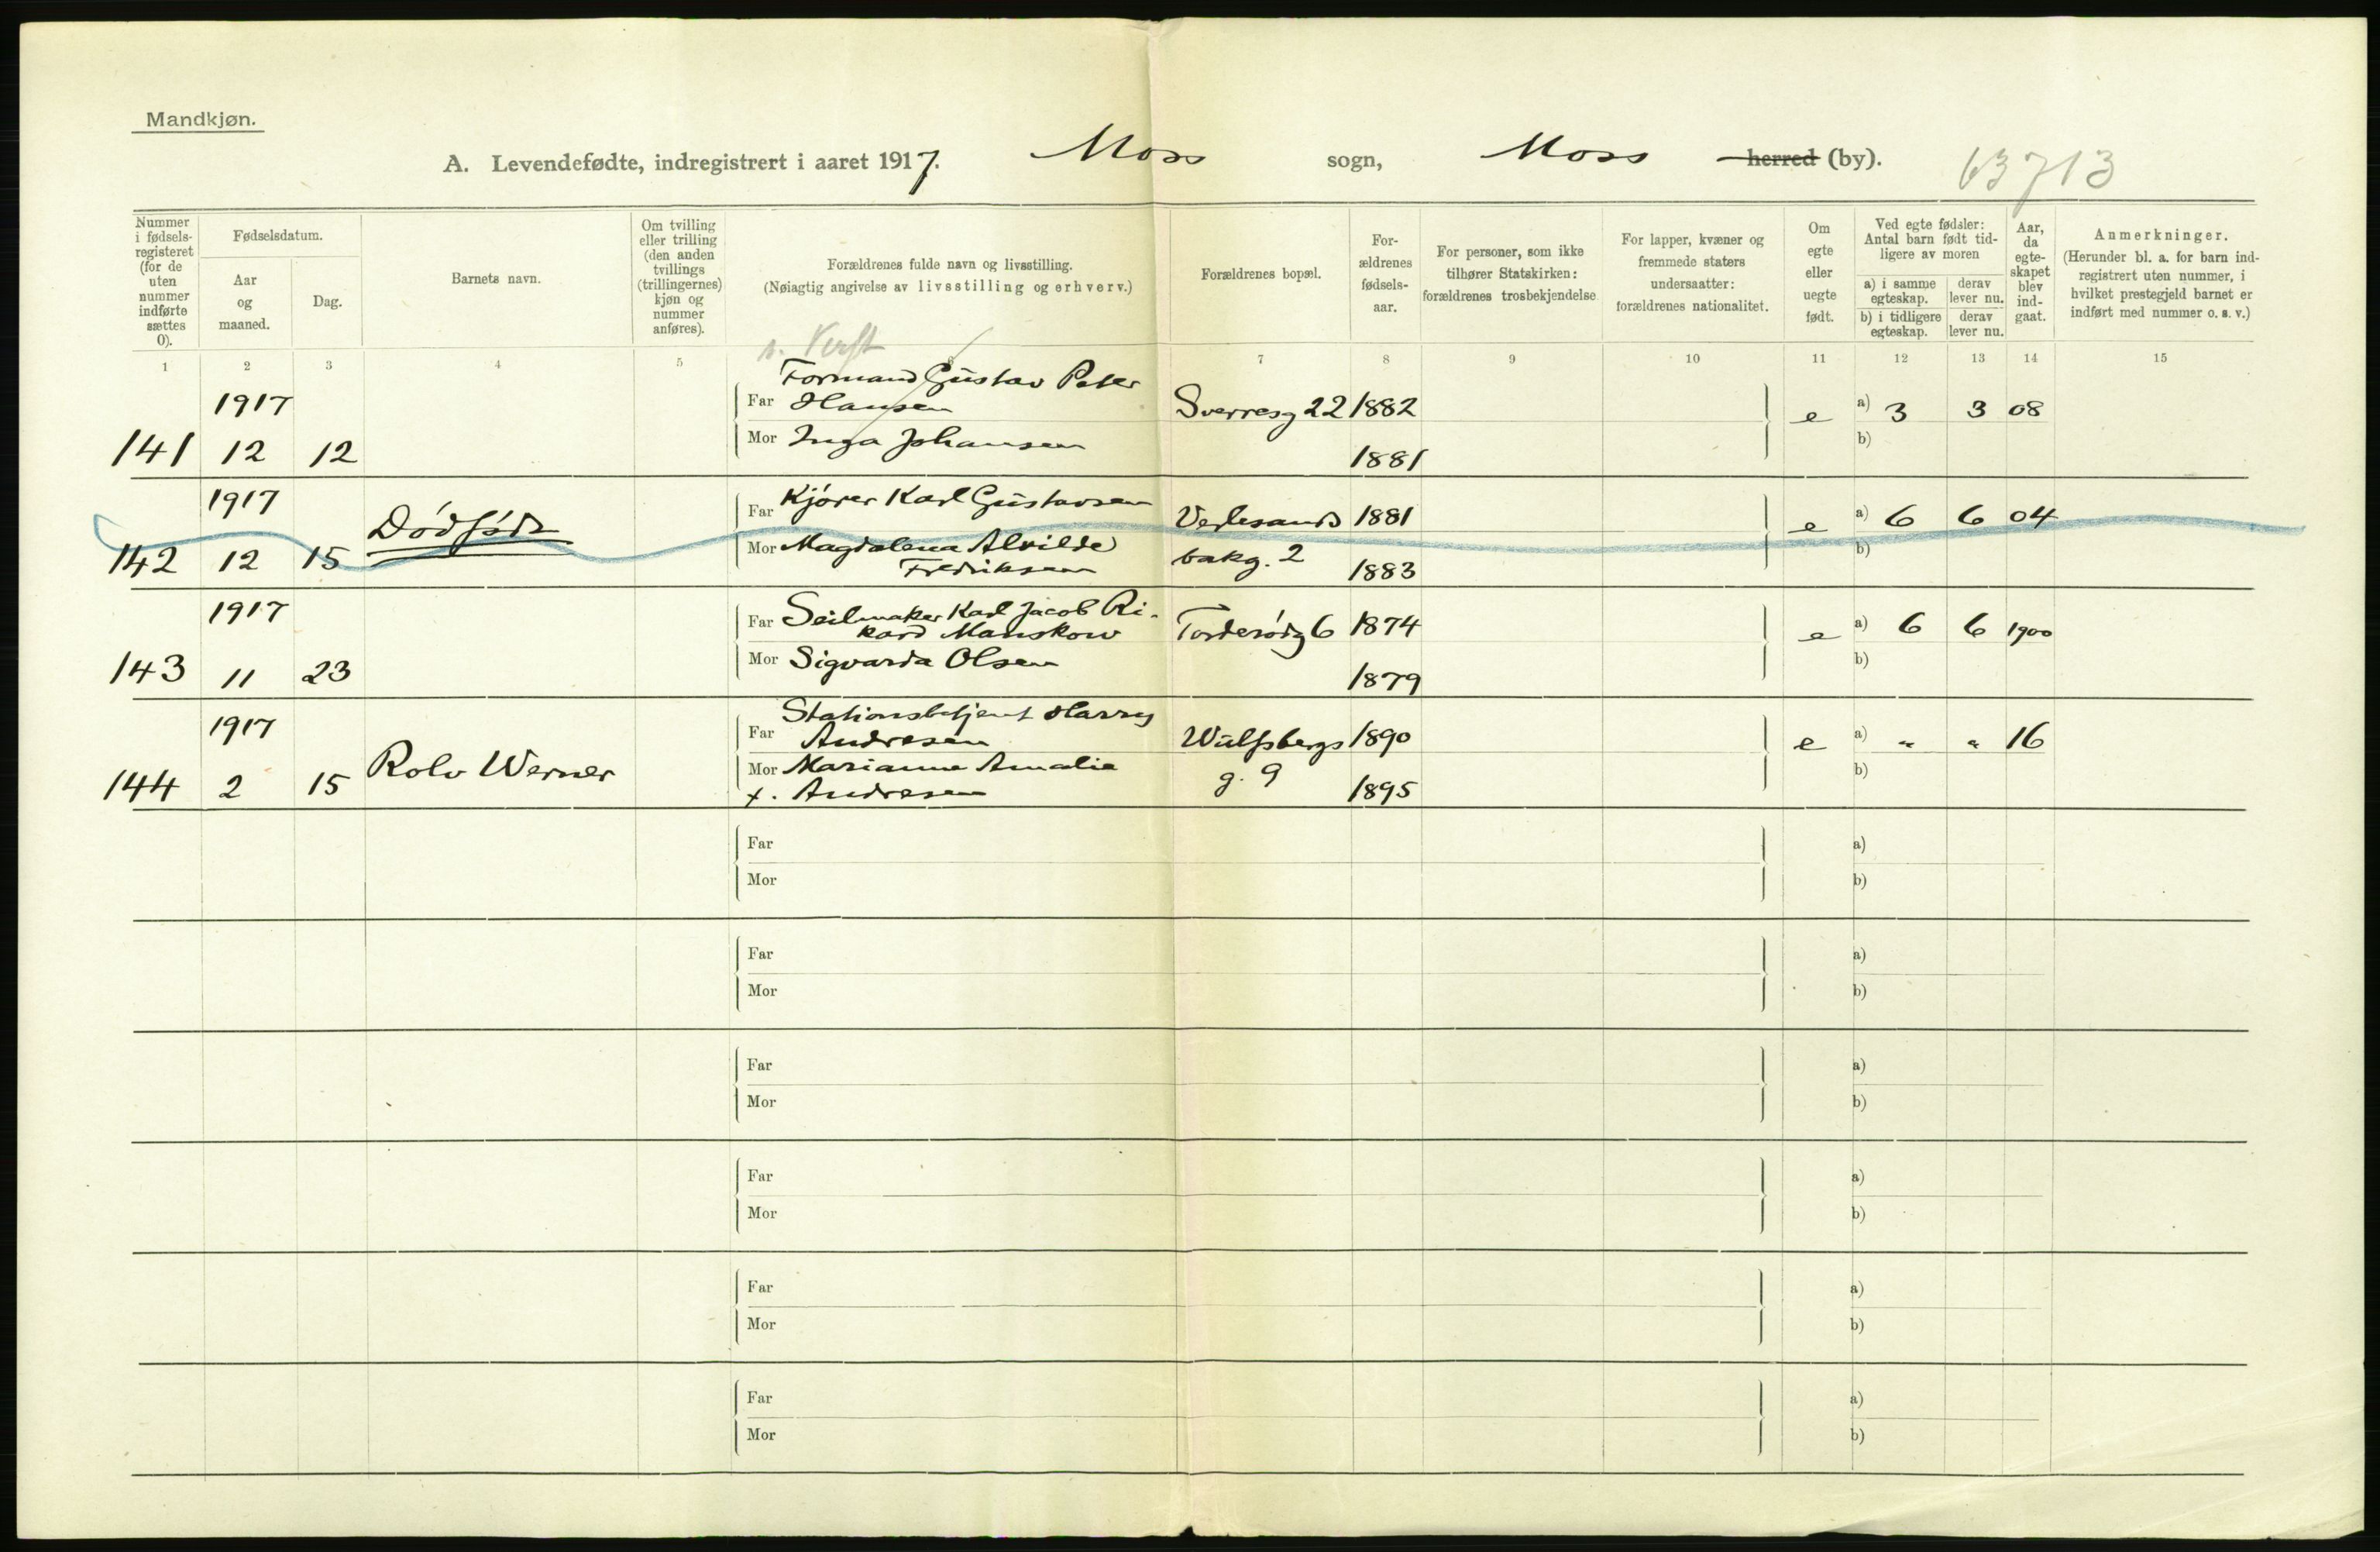 Mandkjøn.
A. Levendefødte, indregistrert i aaret 1917. Moss sogn, Moss herred (by). 63713
Nummer i fødselsregisteret (for de uten nummer indførte sættes 0).
Fødselsdatum.
Aar og maaned.
Dag.
Barnets navn.
Om tvilling eller trilling (den anden tvillings (trillingernes) kjøn og nummer anføres).
Forældrenes fulde navn og livsstilling.
(Nøiagtig angivelse av livsstilling og erhverv.)
Forældrenes bopæl.
Forældrenes fødselsaar.
For personer, som ikke tilhører Statskirken: forældrenes trosbekjendelse
For lapper, kvæner og fremmede staters undersaatter: forældrenes nationalitet.
Om egte eller uegte født.
Ved egte fødsler: Antal barn født tidligere av moren
a) i samme egteskap.
derav lever nu.
b) i tidligere egteskap.
derav lever nu.
Aar, da egteskapet blev indgaat.
Anmerkninger.
(Herunder bl. a. for barn indregistrert uten nummer, i hvilket prestegjeld barnet er indført med nummer o. s. v.)
1 2 3 4 5 6 7 8 9 10 11 12 13 14 15
1917 Formand Gustav Peter
Far Hansen Sverresg 22 1882 e a) 3 3 08
141 12 12 Mor Inga Johansen 1881 b)
1917 Dødfødt Far Kjører Karl Gustavsen Verlesands 1881 e a) 6 6 04
142 12 15 Mor Magdalena Alvilde bakg. 2 1883 b)
Fredriksen
1917 Far Seilmaker Karl Jacob Ri-
kard Manskow Torderødg 6 1874 e a) 6 6 1900
143 11 23 Mor Sigvarda Olsen 1879 b)
1917 Stationsbetjent Harry
Far Andresen Wulfsbergs 1890 e a) " " 16
144 2 15 Rolv Werner Mor Marianne Amalie g. 9 1895 b)
f. Andresen
Far a)
Mor b)
Far a)
Mor b)
Far a)
Mor b)
Far a)
Mor b)
Far a)
Mor b)
Far a)
Mor b)